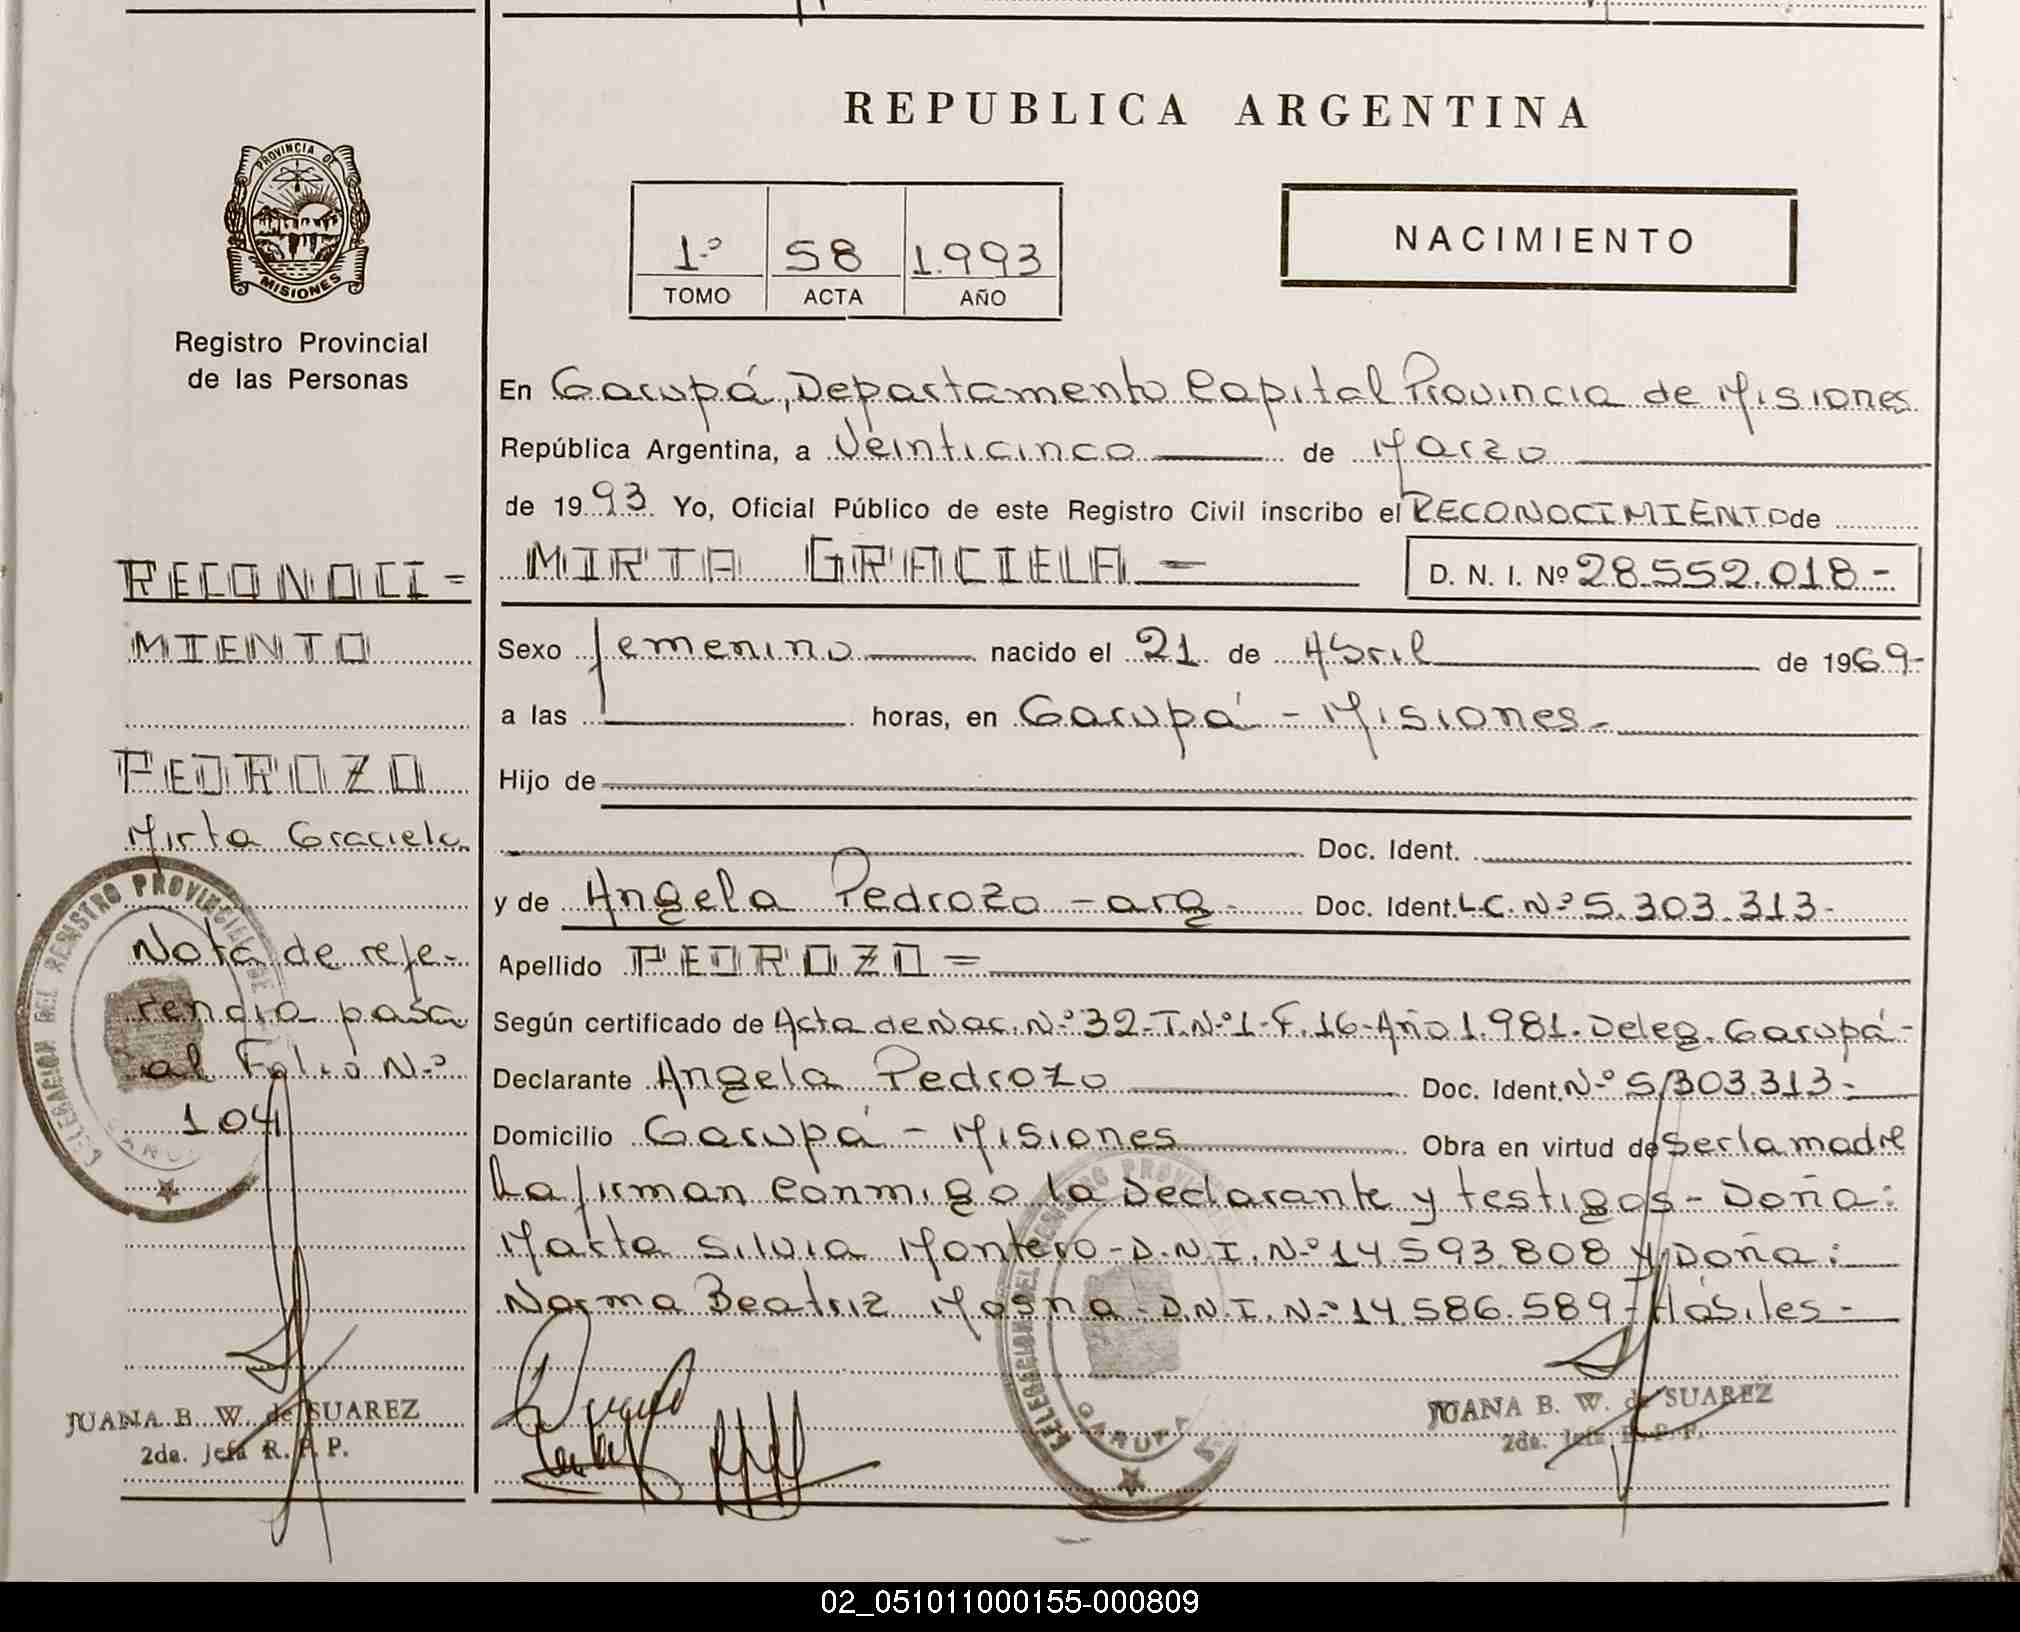 REPUBLICA ARGENTINA
PROVINCIA DE
MISIONES
Registro Provincial
de las Personas
1º 58 1.993
TOMO ACTA AÑO
NACIMIENTO
En Garupá, Departamento Capital Provincia de Misiones
República Argentina, a Veinticinco de Marzo
de 1993. Yo, Oficial Público de este Registro Civil inscribo el RECONOCIMIENTO de
MIRTA GRACIELA - D. N. I. Nº 28.552.018-
Sexo femenino nacido el 21 de Abril de 1969-
a las horas, en Garupá - Misiones-
Hijo de
Doc. Ident.
y de Angela Pedrozo - arg- Doc. Ident. L.C. Nº 5.303.313-
Apellido PEDROZO =
Según certificado de Acta de Nac. Nº 32-T.Nº1-F.16-Año 1.981. Deleg. Garupá-
Declarante Angela Pedrozo Doc. Ident. Nº 5.303.313-
Domicilio Garupá - Misiones Obra en virtud de Ser la madre
La firman conmigo la Declarante y testigos - Doña:
Marta Silvia Montero-D.N.I. Nº 14.593.808 y Doña:
Norma Beatriz D.N.I. Nº 14.586.589-Hábiles-
RECONOCI=
MIENTO
PEDROZO
Mirta Graciela
Nota de refe-
rencia pasa
al Folio Nº
104
DELEGACION DEL REGISTRO PROVINCIAL DE
JUANA B. W. de SUAREZ
2da. Jefa R. P. P.
GARUPA
JUANA B. W. de SUAREZ
2da. Jefa R. P. P.
02_051011000155-000809